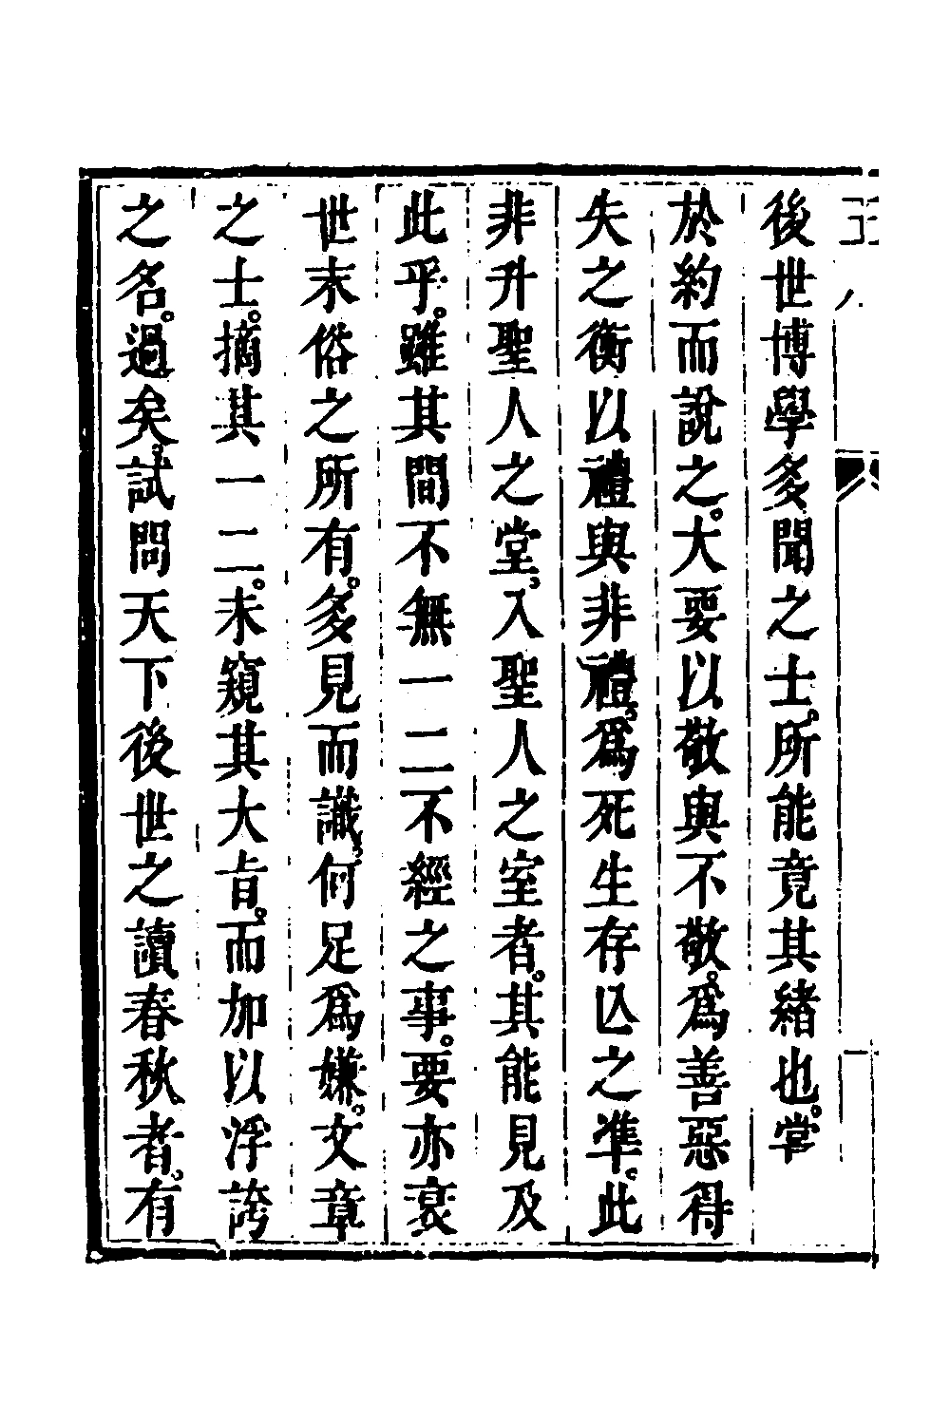 後世博學多聞之士。所能竟其緒也。嘗
於約而說之。大要以敬與不敬。為善惡得
失之衡以禮與非禮。為死生存亾之準。此
非升聖人之堂。入聖人之室者。其能見及
此乎。雖其間不無一二不經之事。要亦衰
世末俗之所有。多見而識。何足為嫌。文章
之士。摘其一二。未窺其大旨。而加以浮誇
之名。過矣。試問天下後世之讀春秋者。有